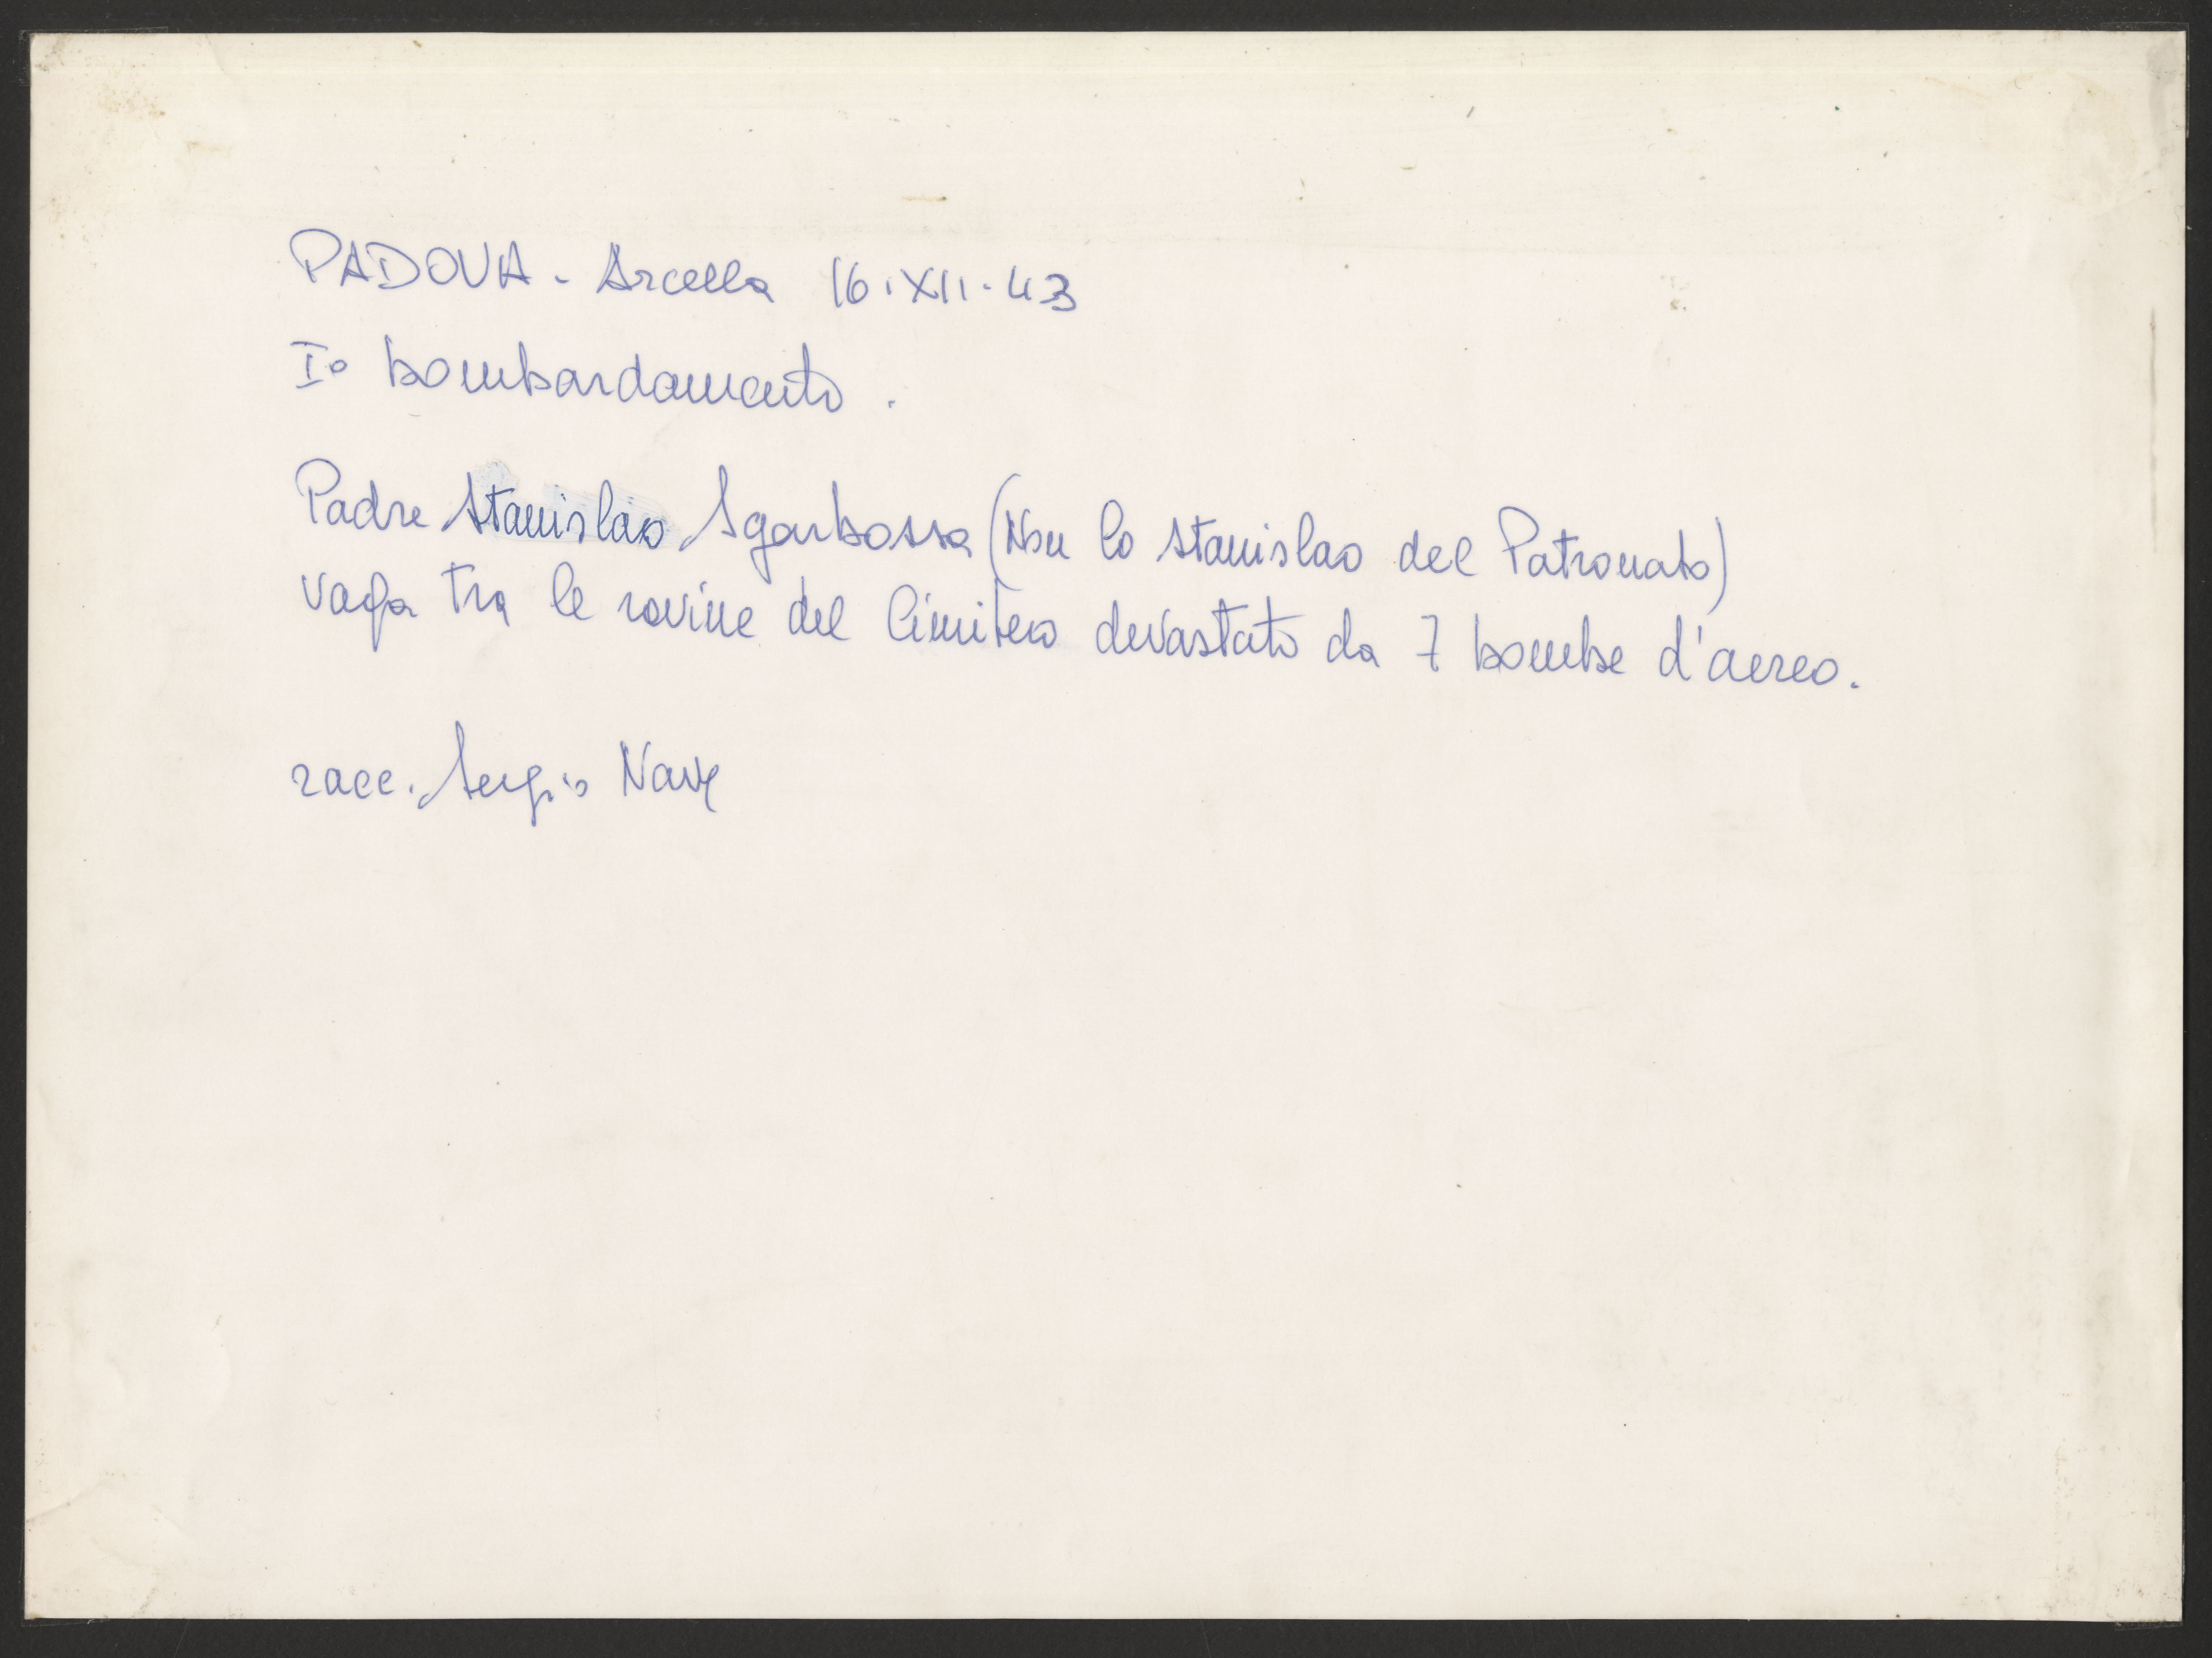 PADOVA - Arcella 16.XII.43
Iº bombardamento.
Padre Stanislao Sgarbossa (Non lo Stanislao del Patronato)
vaga tra le rovine del Cimitero devastato da 7 bombe d'aereo.
racc. Sergio Nave